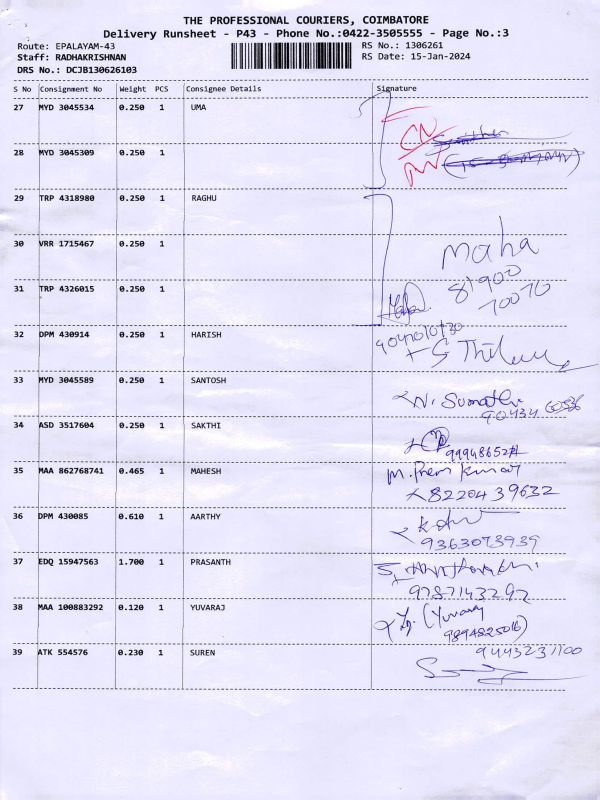 THE PROFESSIONAL COURIERS, COIMBATORE
Delivery Runsheet - P43 - Phone No.:0422-3505555 - Page No.:3
Route: EPALAYAM-43 RS No.: 1306261
Staff: RADHAKRISHNAN RS Date: 15-Jan-2024
DRS No.: DCJB130626103
S No Consignment No Weight PCS Consignee Details Signature
27 MYD 3045534 0.250 1 UMA
28 MYD 3045309 0.250 1
29 TRP 4318980 0.250 1 RAGHU
30 VRR 1715467 0.250 1 Maha
81900
31 TRP 4326015 0.250 1 70070
32 DPM 430914 0.250 1 HARISH
33 MYD 3045589 0.250 1 SANTOSH N. Sumathi
34 ASD 3517604 0.250 1 SAKTHI
35 MAA 862768741 0.465 1 MAHESH M. Prem Kumar
8220439632
36 DPM 430085 0.610 1 AARTHY
9363073939
37 EDQ 15947563 1.700 1 PRASANTH
9787143292
38 MAA 100883292 0.120 1 YUVARAJ (Yuvaraj
9894825016)
39 ATK 554576 0.230 1 SUREN 9443231100